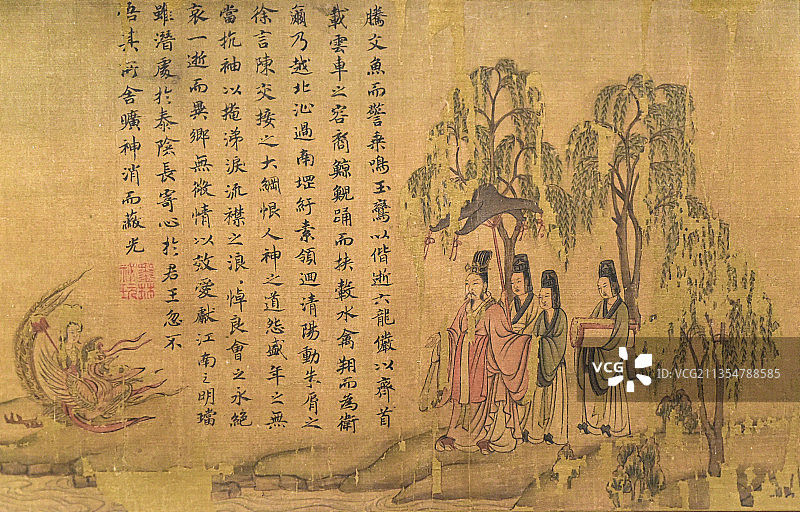 騰文魚而警乘鳴玉鸞以偕逝六龍儼以齊首
載雲車之容裔鯨鯢踊而扶轂水禽翔而為衛
爾乃越北沚過南堽紆素領迴清陽動朱脣之
徐言陳交接之大綱恨人神之道怨盛年之無
當抗袖以掩涕淚流襟之浪〻悼良會之永絕
哀一逝而異鄉無微情以效愛獻江南之明璫
雖潛處於泰陰長寄心於君王忽不
悟其所舍曠神消而蔽光
VCG
视觉中国